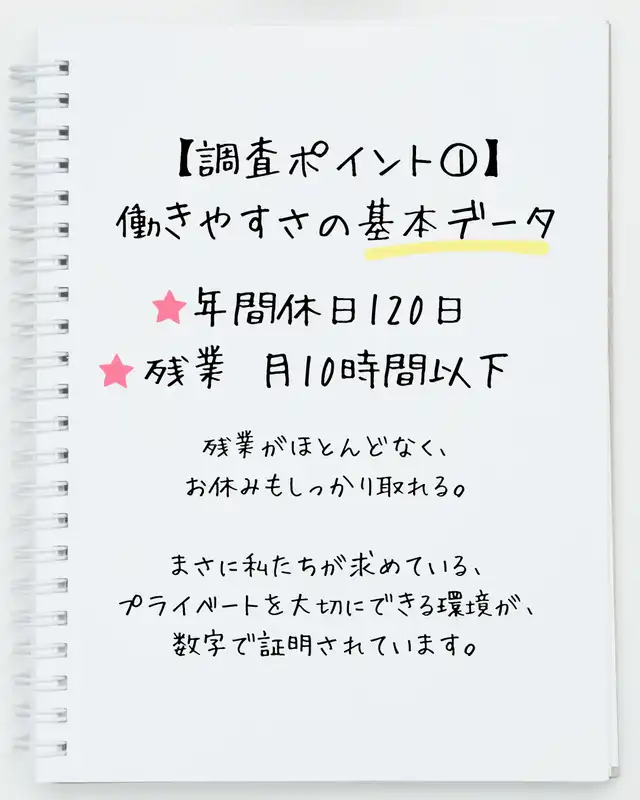 【調査ポイント①】
働きやすさの基本データ
年間休日120日
残業 月10時間以下
残業がほとんどなく、
お休みもしっかり取れる。
まさに私たちが求めている、
プライベートを大切にできる環境が、
数字で証明されています。